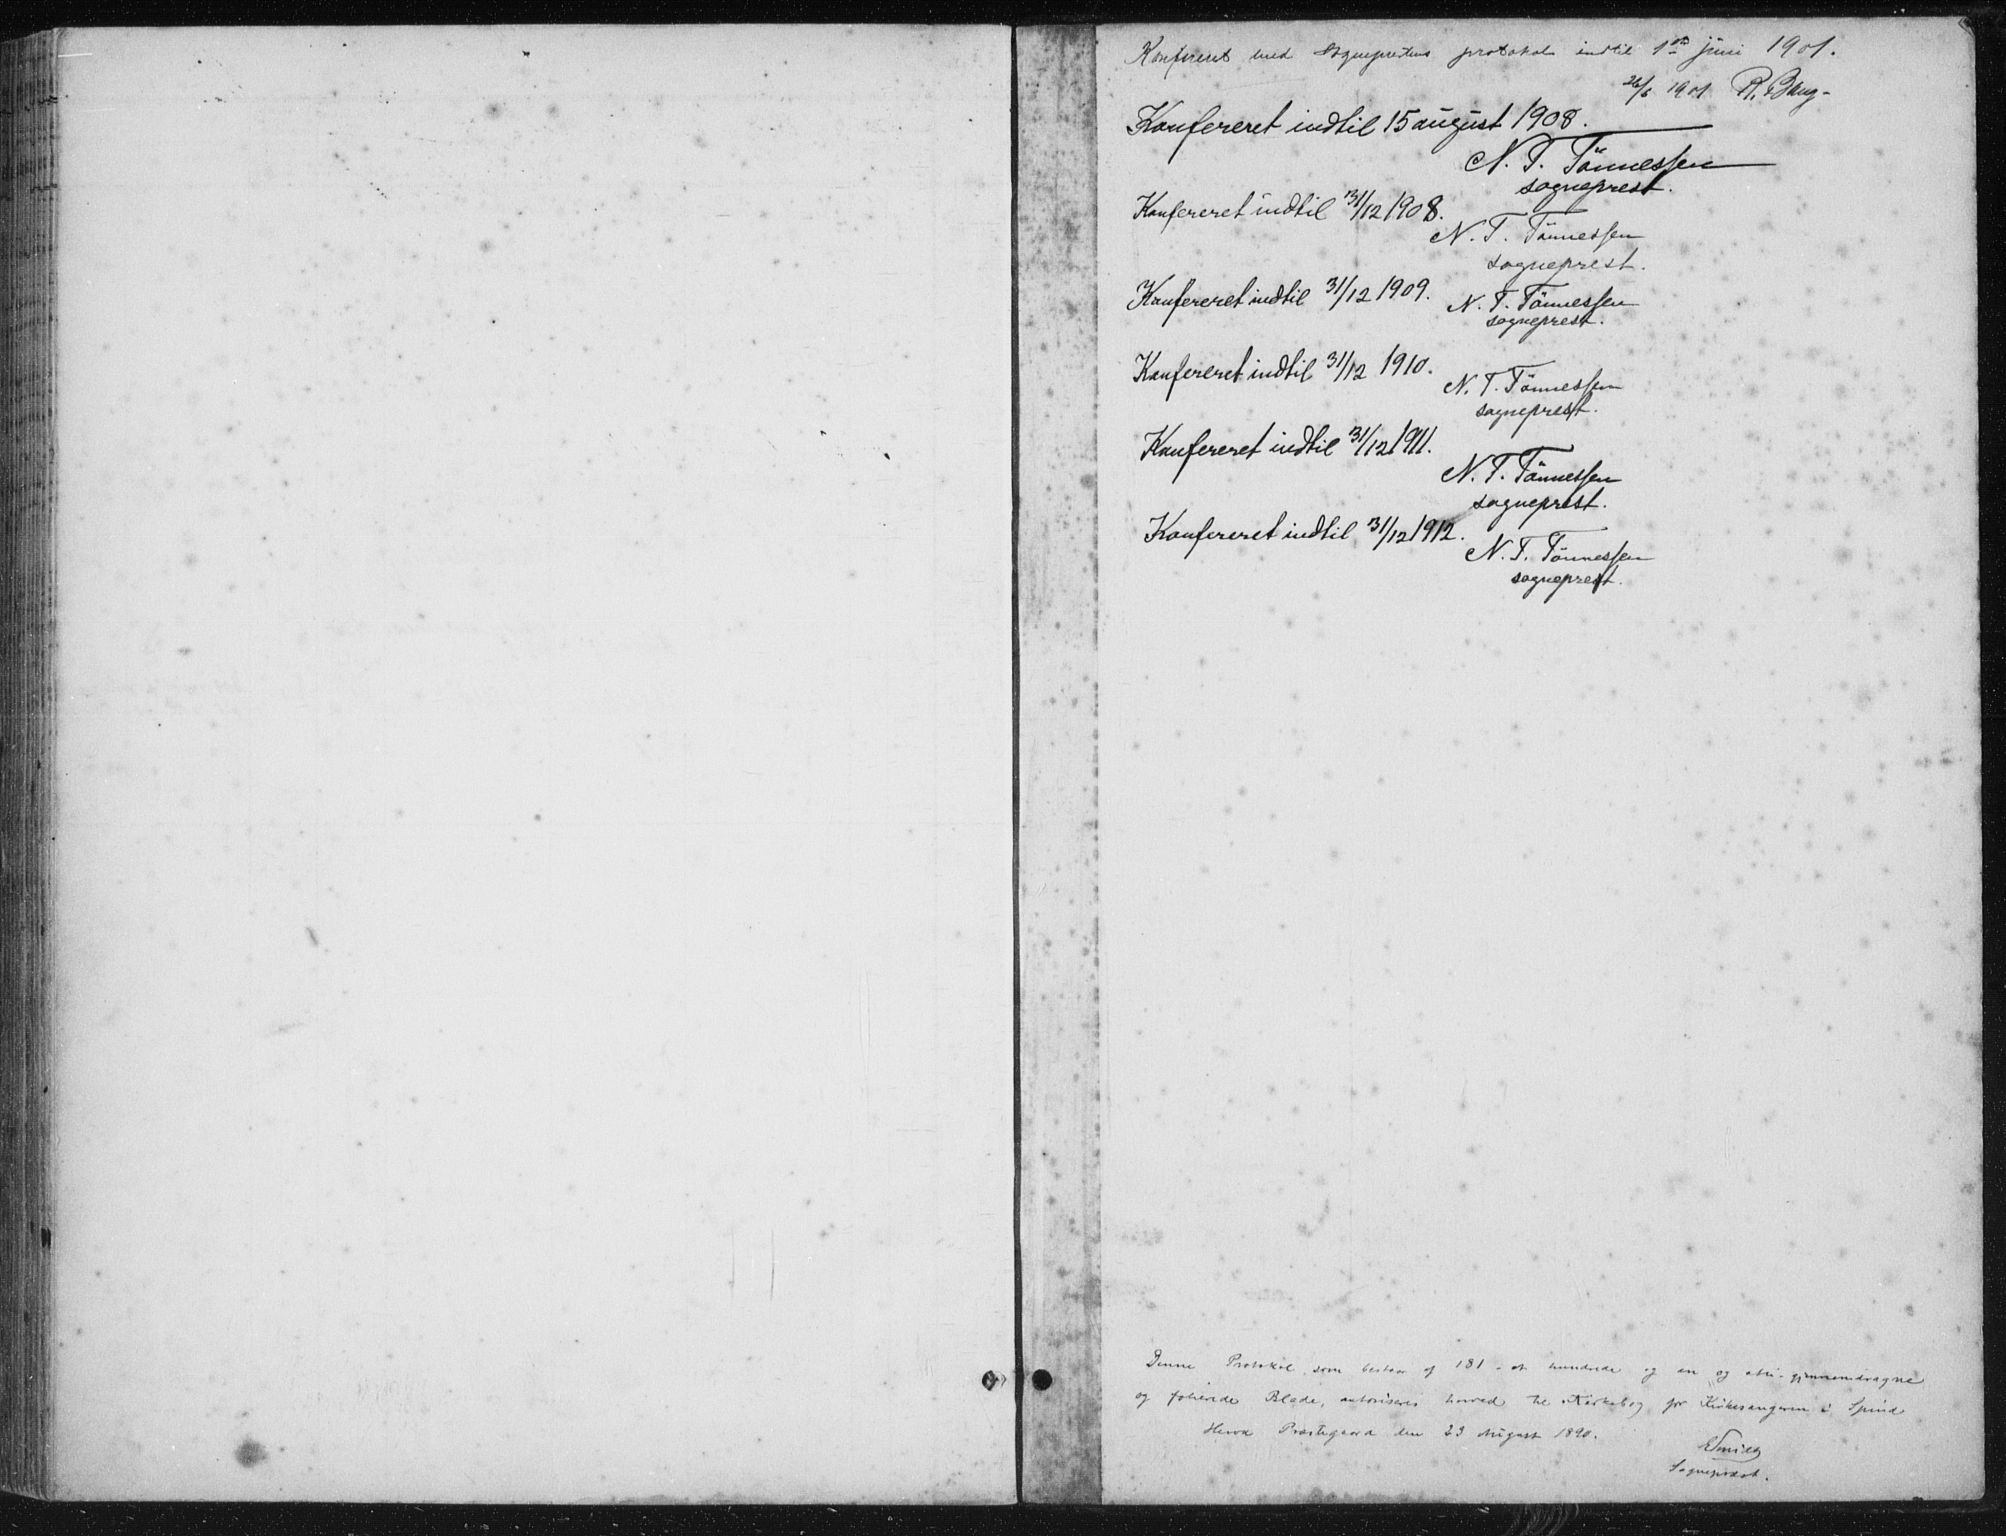 Konfereret med Sogneprestens protokol indtil 1ste juni 1901.
26/6 1901 R. Bang-
Konfereret indtil 15 august 1908.
N. T. Tönnessen
sogneprest.
Konfereret indtil 31/12 1908.
N. T. Tönnessen
sogneprest.
Konfereret indtil 31/12 1909.
N. T. Tönnessen
sogneprest.
Konfereret indtil 31/12 1910.
N. T. Tönnessen
sogneprest.
Konfereret indtil 31/12 1911.
N. T. Tönnessen
sogneprest.
Konfereret indtil 31/12 1912.
N. T. Tönnessen
sogneprest.
Denne Protokol, som bestaar af 181 - et hundrede og en og otti - gjennemdragne
og folierede Blade, autoriseres herved til Kirkebog for Kirkesangeren i Spind
Herad Præstegaard den 23 August 1890.
Sogneprest.